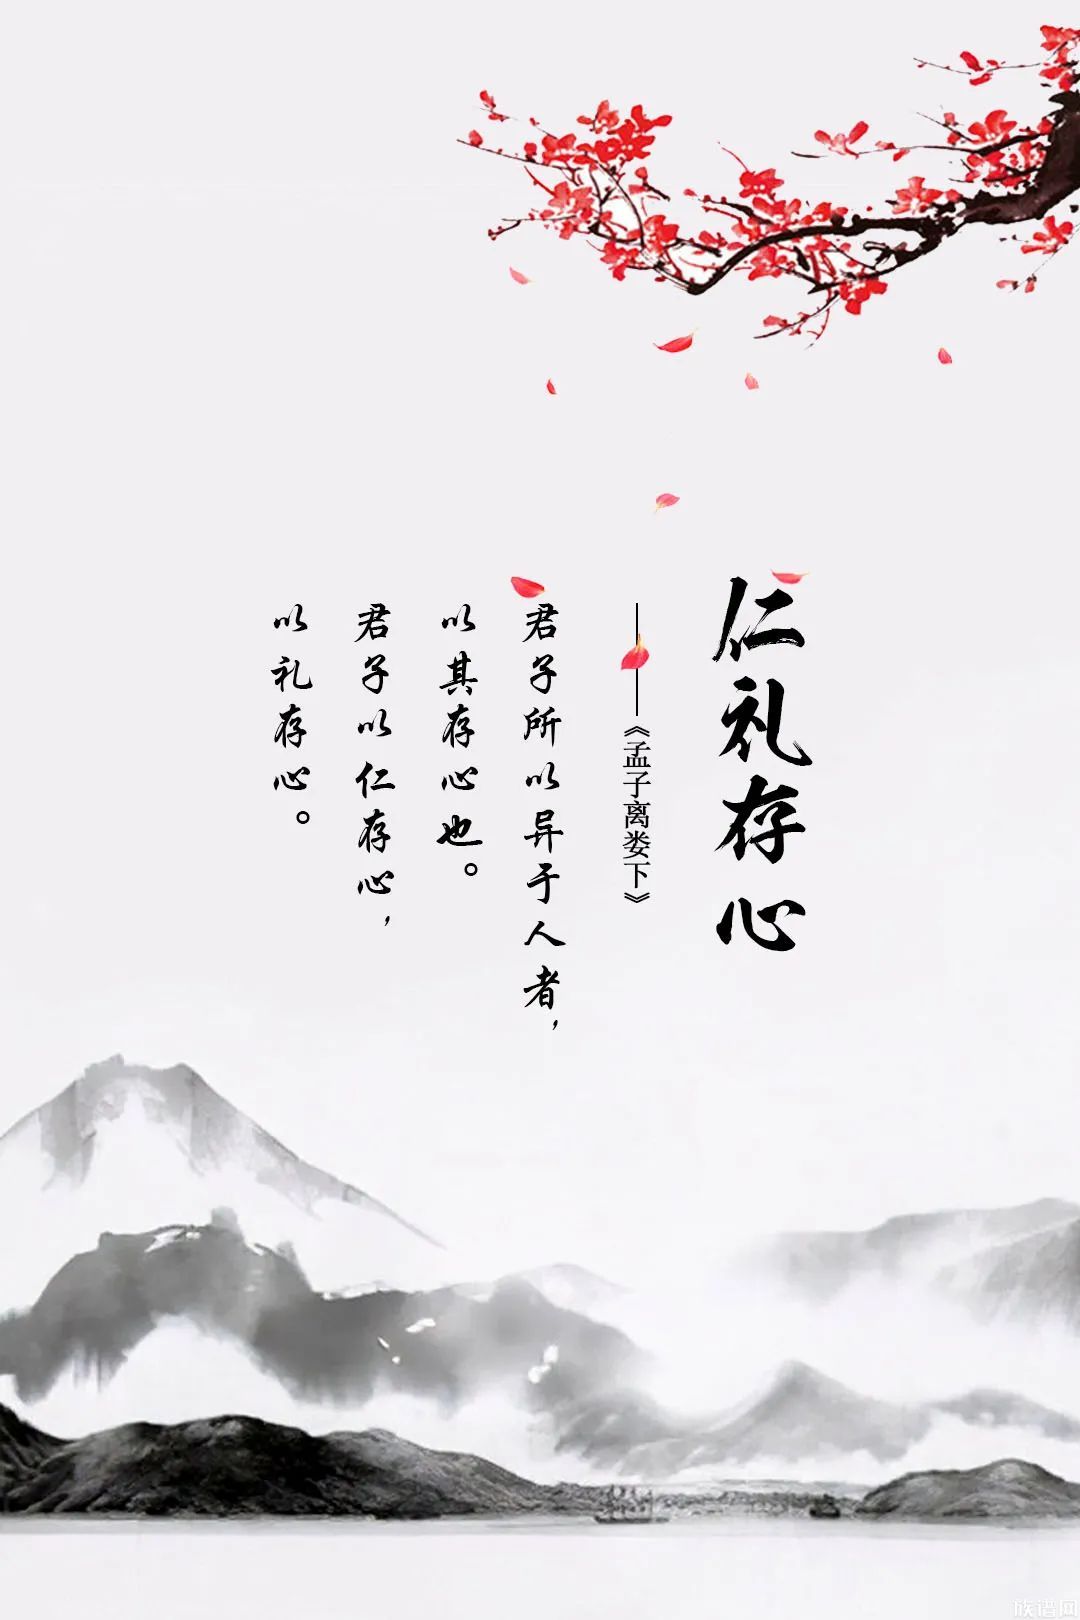 仁礼存心
——《孟子离娄下》
君子所以异于人者，
以其存心也。
君子以仁存心，
以礼存心。
族谱网